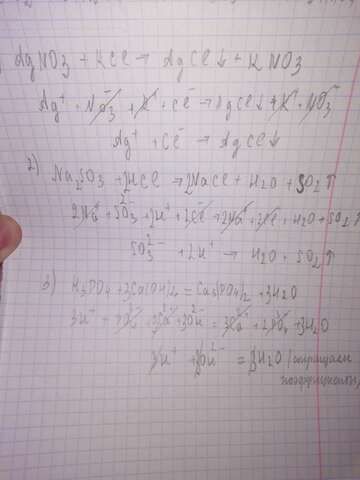 AgNO3 + KCl → AgCl↓ + KNO3
Ag⁺ + NO3⁻ + K⁺ + Cl⁻ → AgCl↓ + K⁺ + NO3⁻
Ag⁺ + Cl⁻ → AgCl↓
2) Na2SO3 + 2HCl → 2NaCl + H2O + SO2↑
2Na⁺ + SO3²⁻ + 2H⁺ + 2Cl⁻ → 2Na⁺ + 2Cl⁻ + H2O + SO2↑
SO3²⁻ + 2H⁺ → H2O + SO2↑
3) H3PO4 + 3Ca(OH)2 = Ca3(PO4)2 + 3H2O
3H⁺ + 3OH⁻ = 3Ca⁺ + 2PO4 + 3H2O
3H⁺ + 3OH²⁻ = 3H2O (сокращаем
коэффициенты)